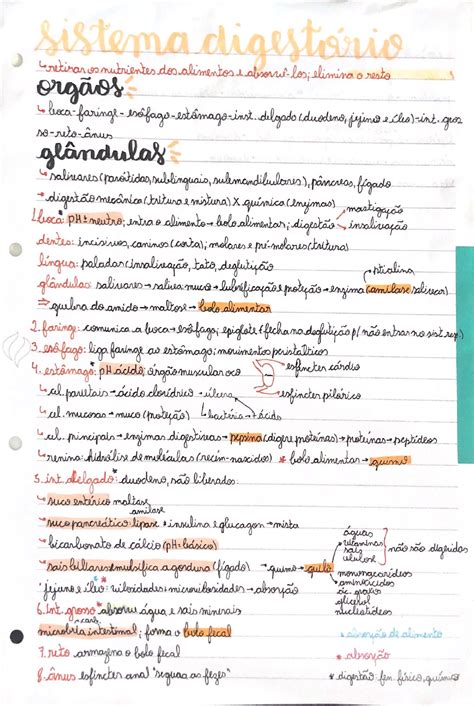 sistema digestório
↳ retirar os nutrientes dos alimentos e absorvê-los; elimina o resto
orgãos
↳ boca-faringe-esôfago-estômago-inst. delgado (duodeno, jejeno e íleo)-int. gros
so-reto-ânus
glândulas
↳ salivares (parótidas, sublinguais, submandibulares), pâncreas, fígado
* digestão mecânica (tritura e mistura) X química (enzimas) → mastigação
1. boca: pH ± neutro; entra o alimento → bolo alimentar; digestão → insalivação
dentes: incisivos, caninos (corta); molares e pré-molares (tritura)
língua: paladar (insalivação, tato, deglutição
ptialina
glândulas: salivares → saliva: muco → lubrificação e proteção → enzima (amilase salivar)
⇒ quebra do amido → maltose → bolo alimentar
2. faringe: comunica a boca → esôfago; epiglote (fecha na deglutição p/ não entrar no sist. resp.)
3. esôfago: liga faringe ao estômago; movimentos peristálticos
4. estômago: pH ácido; órgão muscular oco
esfíncter cárdio
esfíncter pilórico
↳ cel. parietais → ácido clorídrico → úlcera
↳ cel. mucosas → muco (proteção)
↳ bactéria → ácido
↳ cel. principais → enzimas digestivas → pepsina (digere proteínas) → proteínas → peptídeos
↳ renina: hidrólise de moléculas (recém-nascidos) * bolo alimentar → quimo
5. int. delgado: duodeno, são liberados:
↳ suco entérico maltase
amilase
↳ suco pancreático lipase + insulina e glucagon → mista
↳ bicarbonato de cálcio (pH básico)
águas
vitaminas
sais
celulose
não são digeridas
↳ sais biliares: emulsifica a gordura (fígado) → quimo → quilo
monossacarídeos
aminoácidos
ác. graxos
glicerol
nucleotídeos
jejeno e íleo: vilosidades + microvilosidades → absorção
6. int. grosso: absorve água e sais minerais
microbiota intestinal; forma o bolo fecal
absorção de alimento
7. reto armazena o bolo fecal
* absorção
8. ânus esfíncter anal "segura as fezes"
* digestão: fen. físico, químico